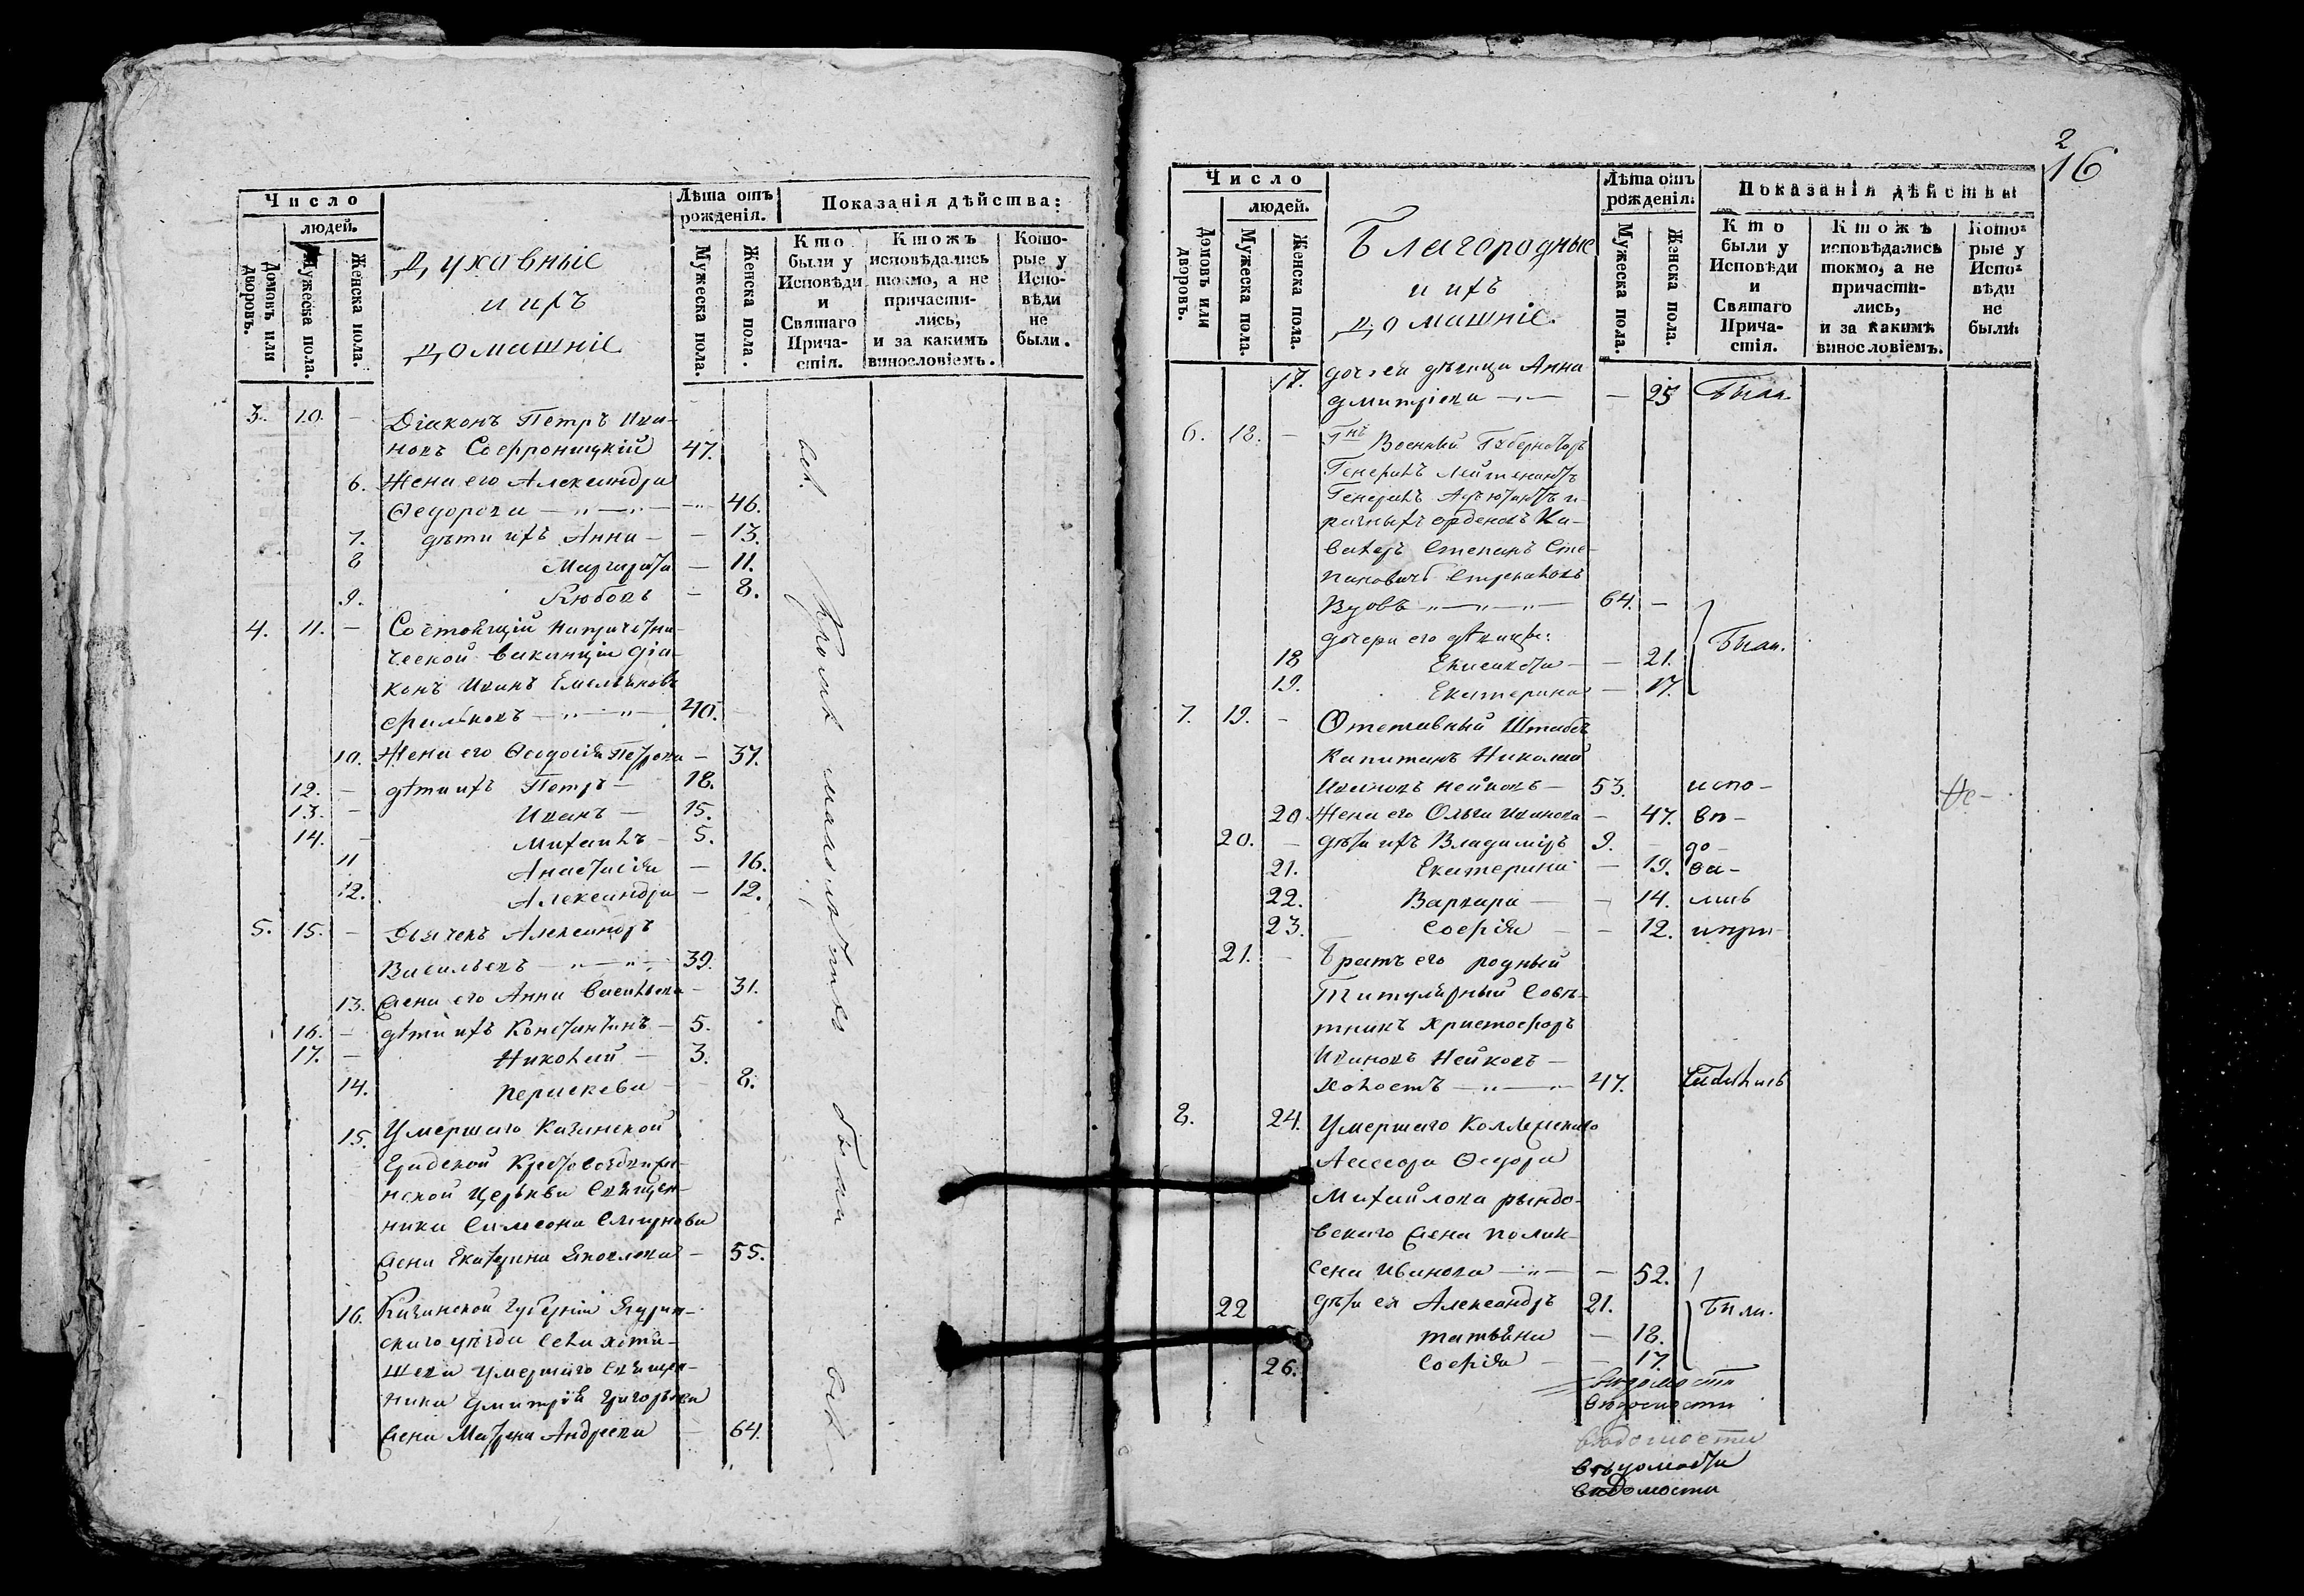 Число
людей.
Домовъ или дворовъ.
Мужеска пола.
Женска пола.
Духовные
и ихъ
домашніе
Лѣта отъ рожденія.
Мужеска пола.
Женска пола.
Показанія дѣйства:
Кто были у Исповѣди и Святаго Причастія.
Ктожъ исповѣдались токмо, а не причастились, и за какимъ винословіемъ.
Которые у Исповѣди не были.
3. 10. – Діаконъ Петръ Ива-
новъ Софроницкій 47.
6. Жена его Александра
Ѳедорова – „ – „ – 46.
7. дѣти ихъ Анна – – 13.
8 Маргарита – 11.
9. Любовь – 8.
4. 11. – Состоящій на причетни-
ческой вакансіи діа-
конъ Иванъ Емельяновъ
Фильковъ – „ – „ – 40.
10. Жена его Ѳеодосія Петрова – 37.
12. – дѣти ихъ Петръ – 18.
13. – Иванъ – 15.
14. – Михаилъ – 5.
11 Анастасія – 16.
12. Александра – 12.
5. 15. – Дьячекъ Александръ
Васильевъ – „ – „ – 39.
13. Жена его Анна Васильева – 31.
16. – дѣти ихъ Константинъ – 5.
17. – Николай – 3.
14. Параскева – 8.
15. Умершаго Казанской
Градской Крестовоздвиже-
нской Церькви Священ-
ника Симеона Смирнова
жена Екатерина Яковлева – 55.
16. Казанской губерніи Ядрин-
скаго уѣзда села
умершаго Священ-
ника Димитрія Григорьева
жена Матрена Андреева – 64.
всѣ Кромѣ малолѣтнихъ были
2
16
Число
людей.
Домовъ или дворовъ.
Мужеска пола.
Женска пола.
Благородные
и ихъ
домашніе.
Лѣта отъ рожденія.
Мужеска пола.
Женска пола.
Показанія дѣйства
Кто были у Исповѣди и Святаго Причастія.
Ктожъ исповѣдались токмо, а не причастились, и за какимъ винословіемъ.
Которые у Исповѣди не были.
17. дочь ея дѣвица Анна
Дмитріева – „ – – 25 Была.
6. 18. – Гнъ Военный Губернаторъ
Генералъ Лейтенантъ
Генералъ Адъютантъ и
разныхъ орденовъ Ка-
валеръ Степанъ Сте-
пановичъ Стрекаловъ
Вдовъ – „ – „ – „ – 64. –
дочери его дѣвицы:
18 Елисавета – – 21. Были.
19. Екатерина – 17.
7. 19. – Отставный Штабсъ
Капитанъ Николай
Ивановъ Нейковъ – 53. испо-
20. Жена его Ольга Иванова – 47. вѣ-
20. – дѣти ихъ Владиміръ 9. – до-
21. Екатерина – 19. ва-
22. Варвара – – 14. лись
23. Софія – – 12. и при-
21. – Братъ его родный
Титулярный Совѣ-
тникъ Христофоръ
Ивановъ Нейковъ –
холостъ – „ – „ 47.
8. 24. Умершаго Коллежскаго
Ассесора Ѳедора
Михайлова Рындо-
вскаго жена Полик-
сена Иванова – „ – – 52.
22 дѣти ея Александръ 21. Были.
Татьяна – 18.
26. Софія – – 17.
вѣдомости
вѣдомости
вѣдомости
вѣдомости
вѣдомости